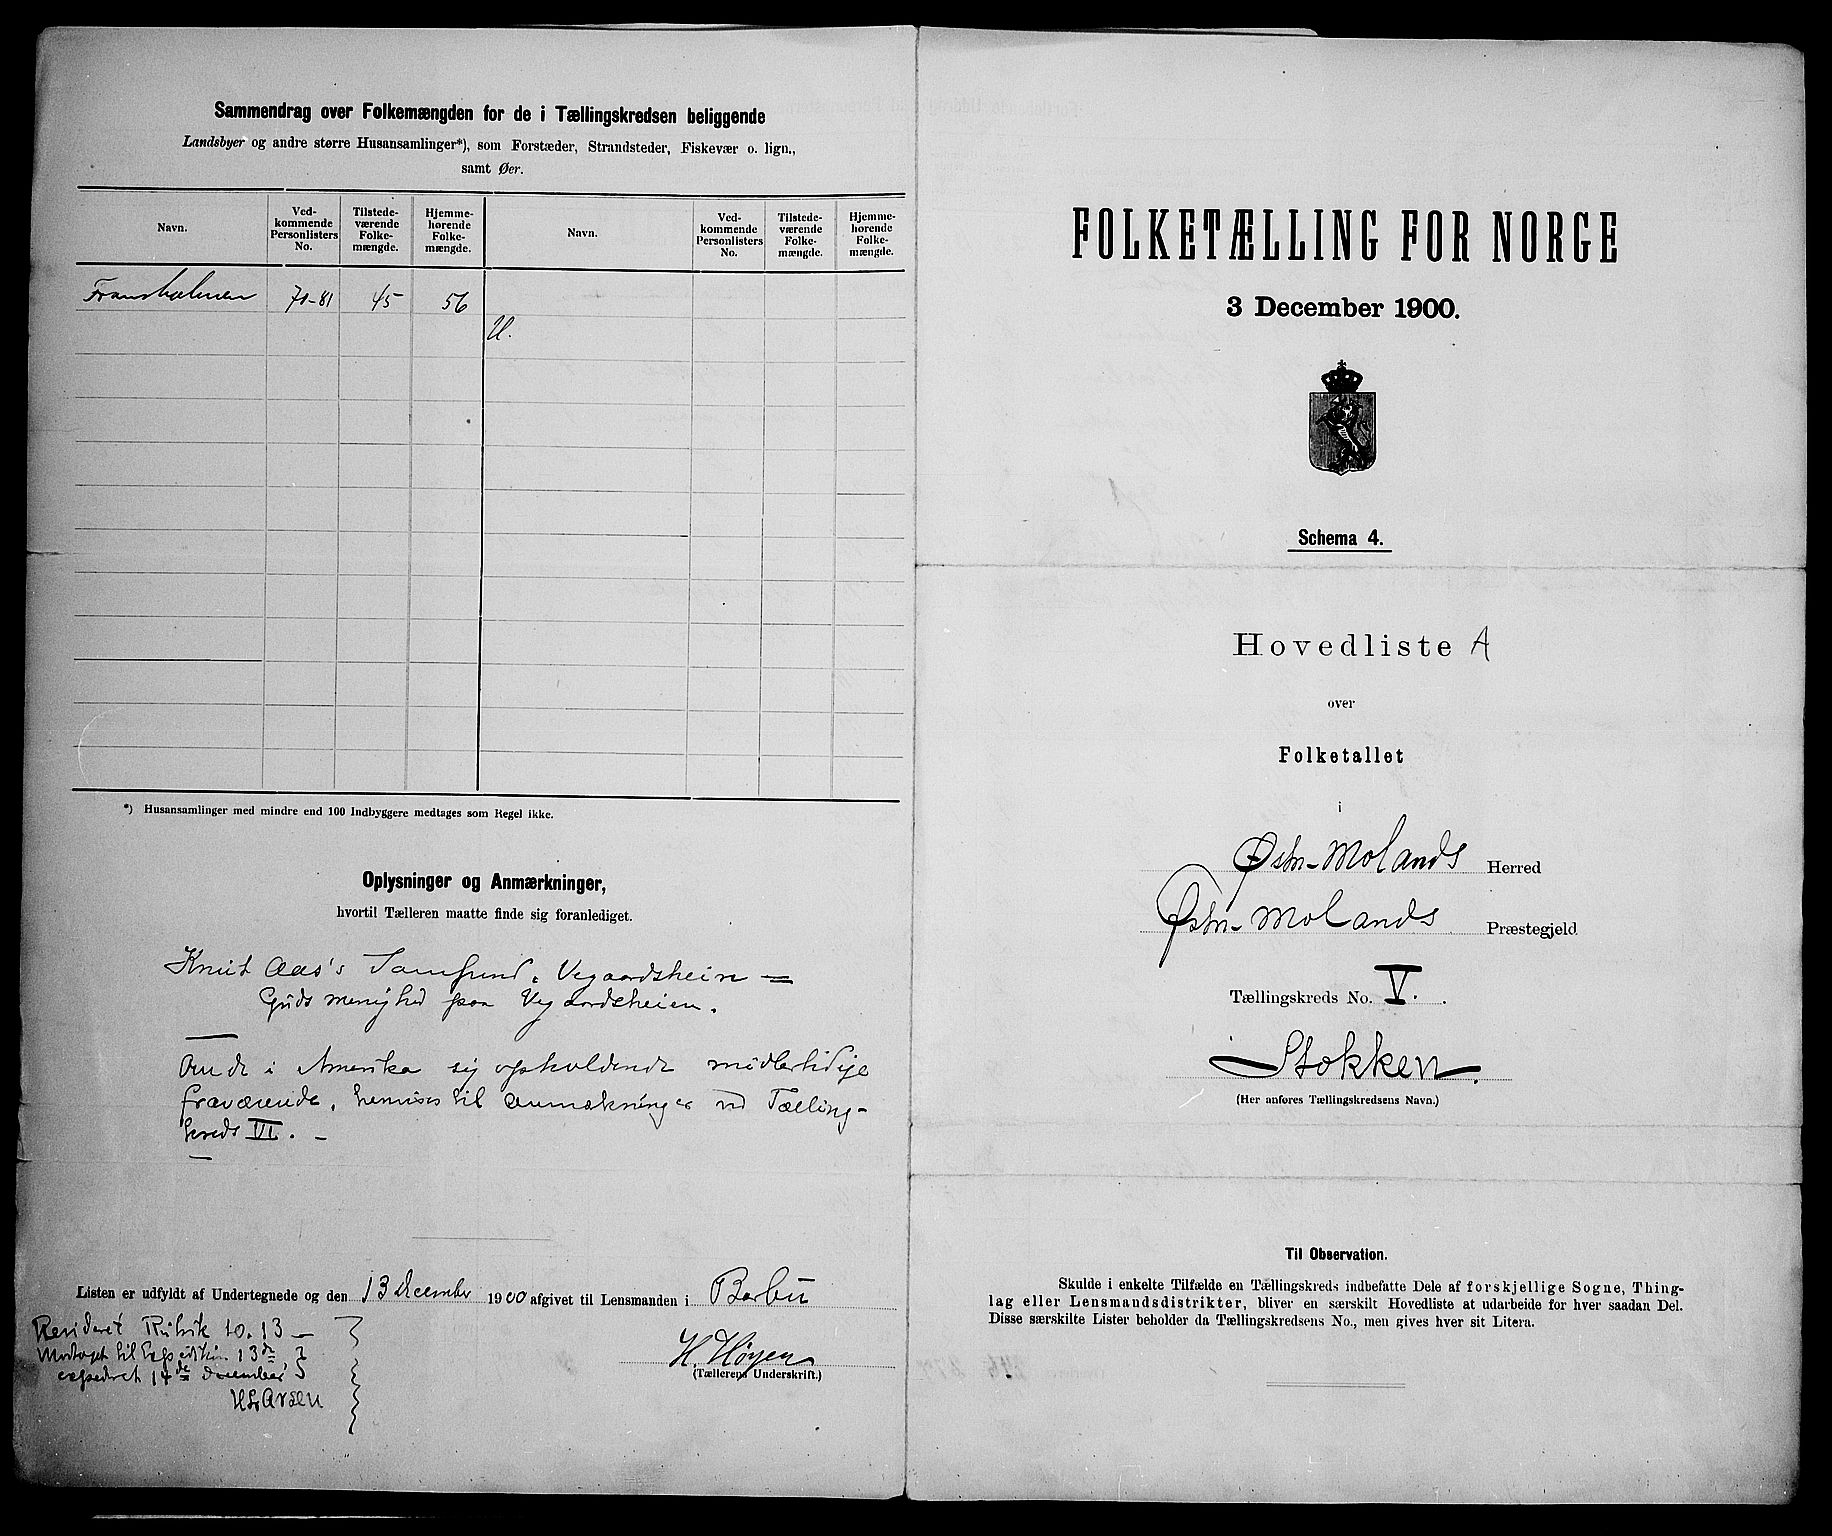 Sammendrag over Folkemængden for de i Tællingskredsen beliggende
Landsbyer og andre større Husansamlinger*), som Forstæder, Strandsteder, Fiskevær o. lign.,
samt Øer.
Navn.
Ved-
kommende
Personlisters
No.
Tilstede-
værende
Folke-
mængde.
Hjemme-
hørende
Folke-
mængde.
Navn.
Ved-
kommende
Personlisters
No.
Tilstede-
værende
Folke-
mængde.
Hjemme-
hørende
Folke-
mængde.
Fransholmen 70-81 45 56
U.
*) Husansamlinger med mindre end 100 Indbyggere medtages som Regel ikke.
Oplysninger og Anmærkninger,
hvortil Tælleren maatte finde sig foranlediget.
Knut Aas's Samfund, Vegaardsheien =
Guds menighed paa Vegaardsheien.
i Amerika sig opholdende midlertidige
fraværende, henvises til anmærkninger ved Tælling-
kreds VI. -
Listen er udfyldt af Undertegnede og den 13 december 1900 afgivet til Lensmanden i Barbu
Revideret Rubrik 10.13 -
Modtaget til Expedition 13de
expederet 14de december
H Larsen
H. Høyen
(Tællerens Underskrift.)
FOLKETÆLLING FOR NORGE
3 December 1900.
Schema 4.
Hovedliste A
over
Folketallet
i
Østre-Molands Herred
Østre-Molands Præstegjeld
Tællingskreds No. V.
Stokken.
(Her anføres Tællingskredsens Navn.)
Til Observation.
Skulde i enkelte Tilfælde en Tællingskreds indbefatte Dele af forskjellige Sogne, Thing-
lag eller Lensmandsdistrikter, bliver en særskilt Hovedliste at udarbeide for hver saadan Del.
Disse særskilte Lister beholder da Tællingskredsens No., men gives hver sit Litera.